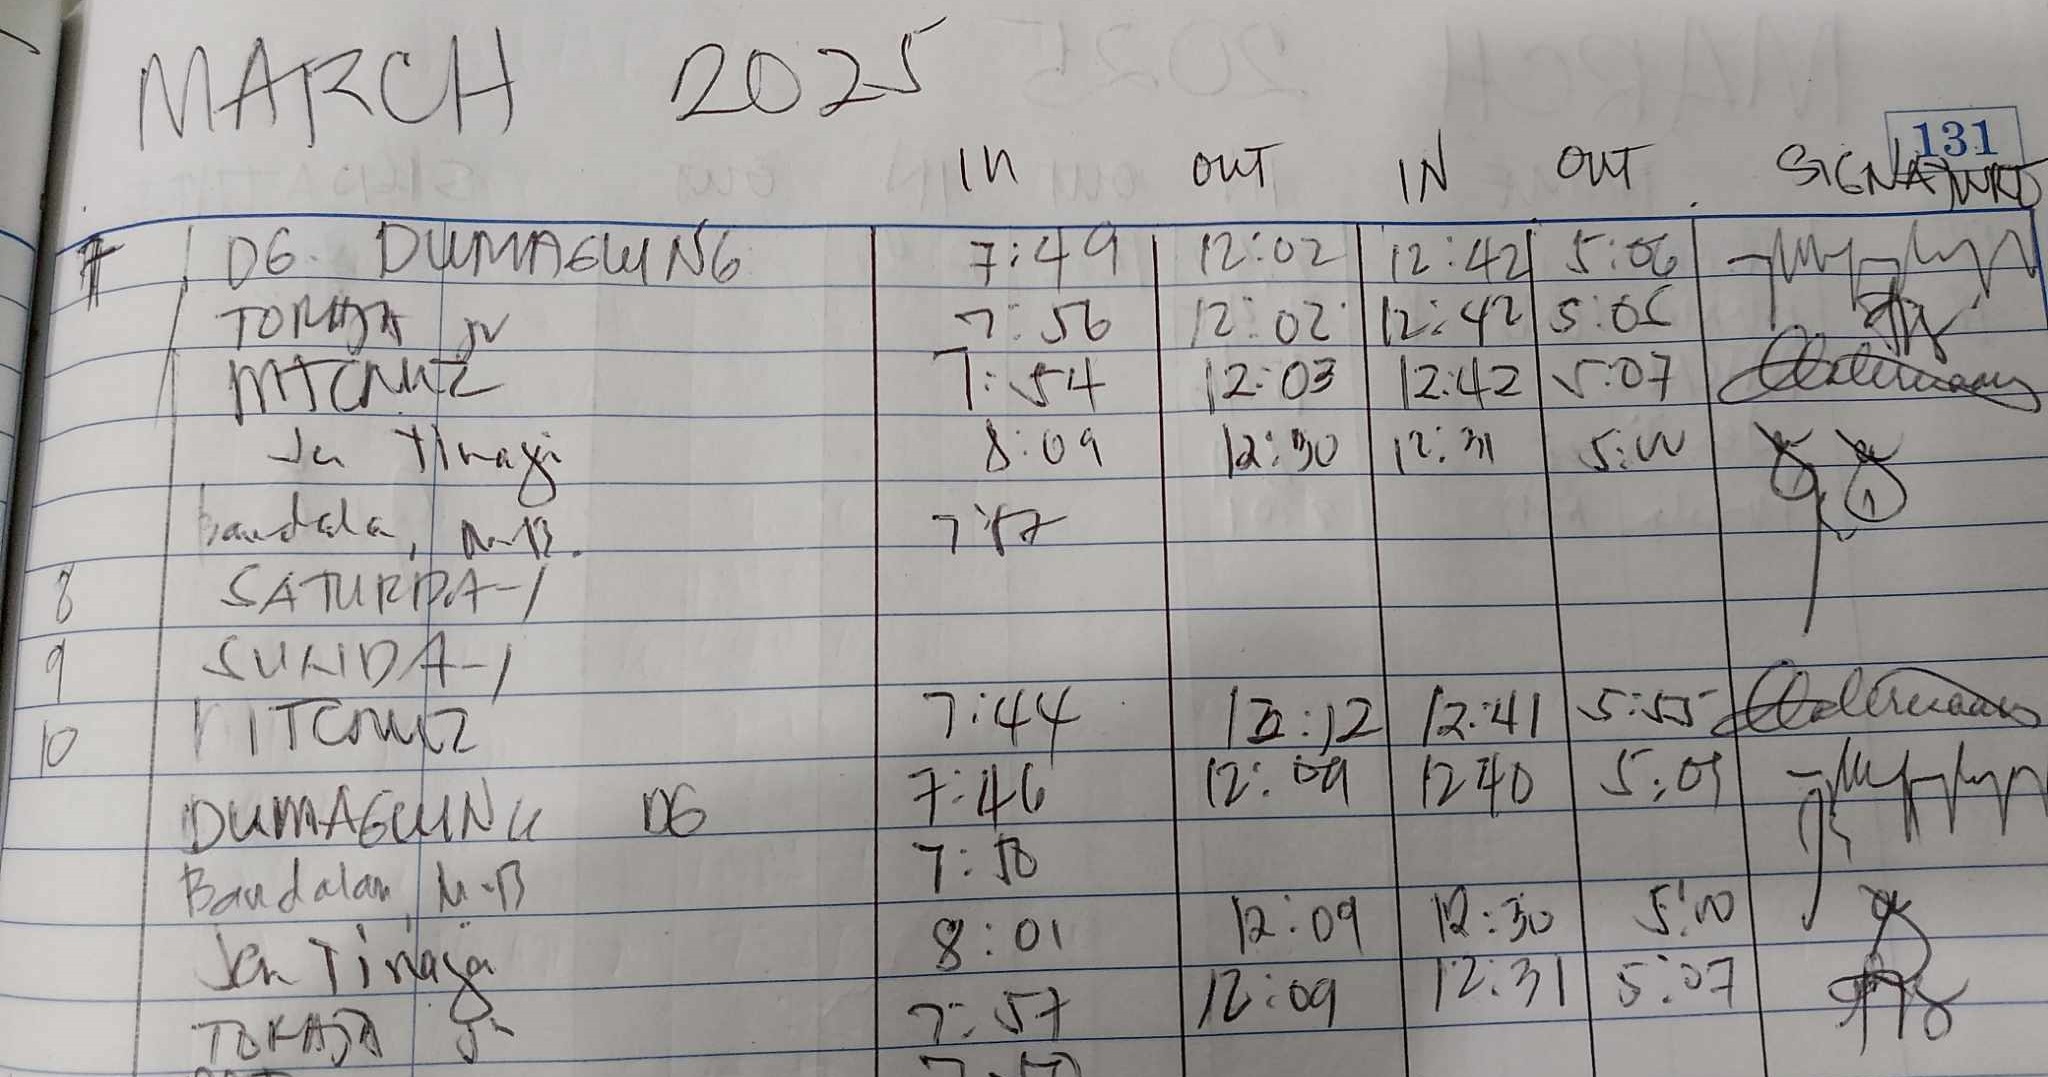 MARCH 2025
131
IN OUT IN OUT SIGNATURE
7 DG. DUMAGUING 7:49 12:02 12:42 5:06
JR 7:56 12:02 12:42 5:05
MTCRUZ 7:54 12:03 12:42 5:07
Jen Tinaga 8:09 12:30 12:31 5:00
Bandalan, M.B. 7:57
8 SATURDAY
9 SUNDAY
10 MTCRUZ 7:44 12:12 12:41 5:55
DUMAGUING DG 7:46 12:09 1240 5:09
Bandalan, M.B 7:50
Jen Tinaga 8:01 12:09 12:30 5:00
JR 7:57 12:09 12:31 5:07